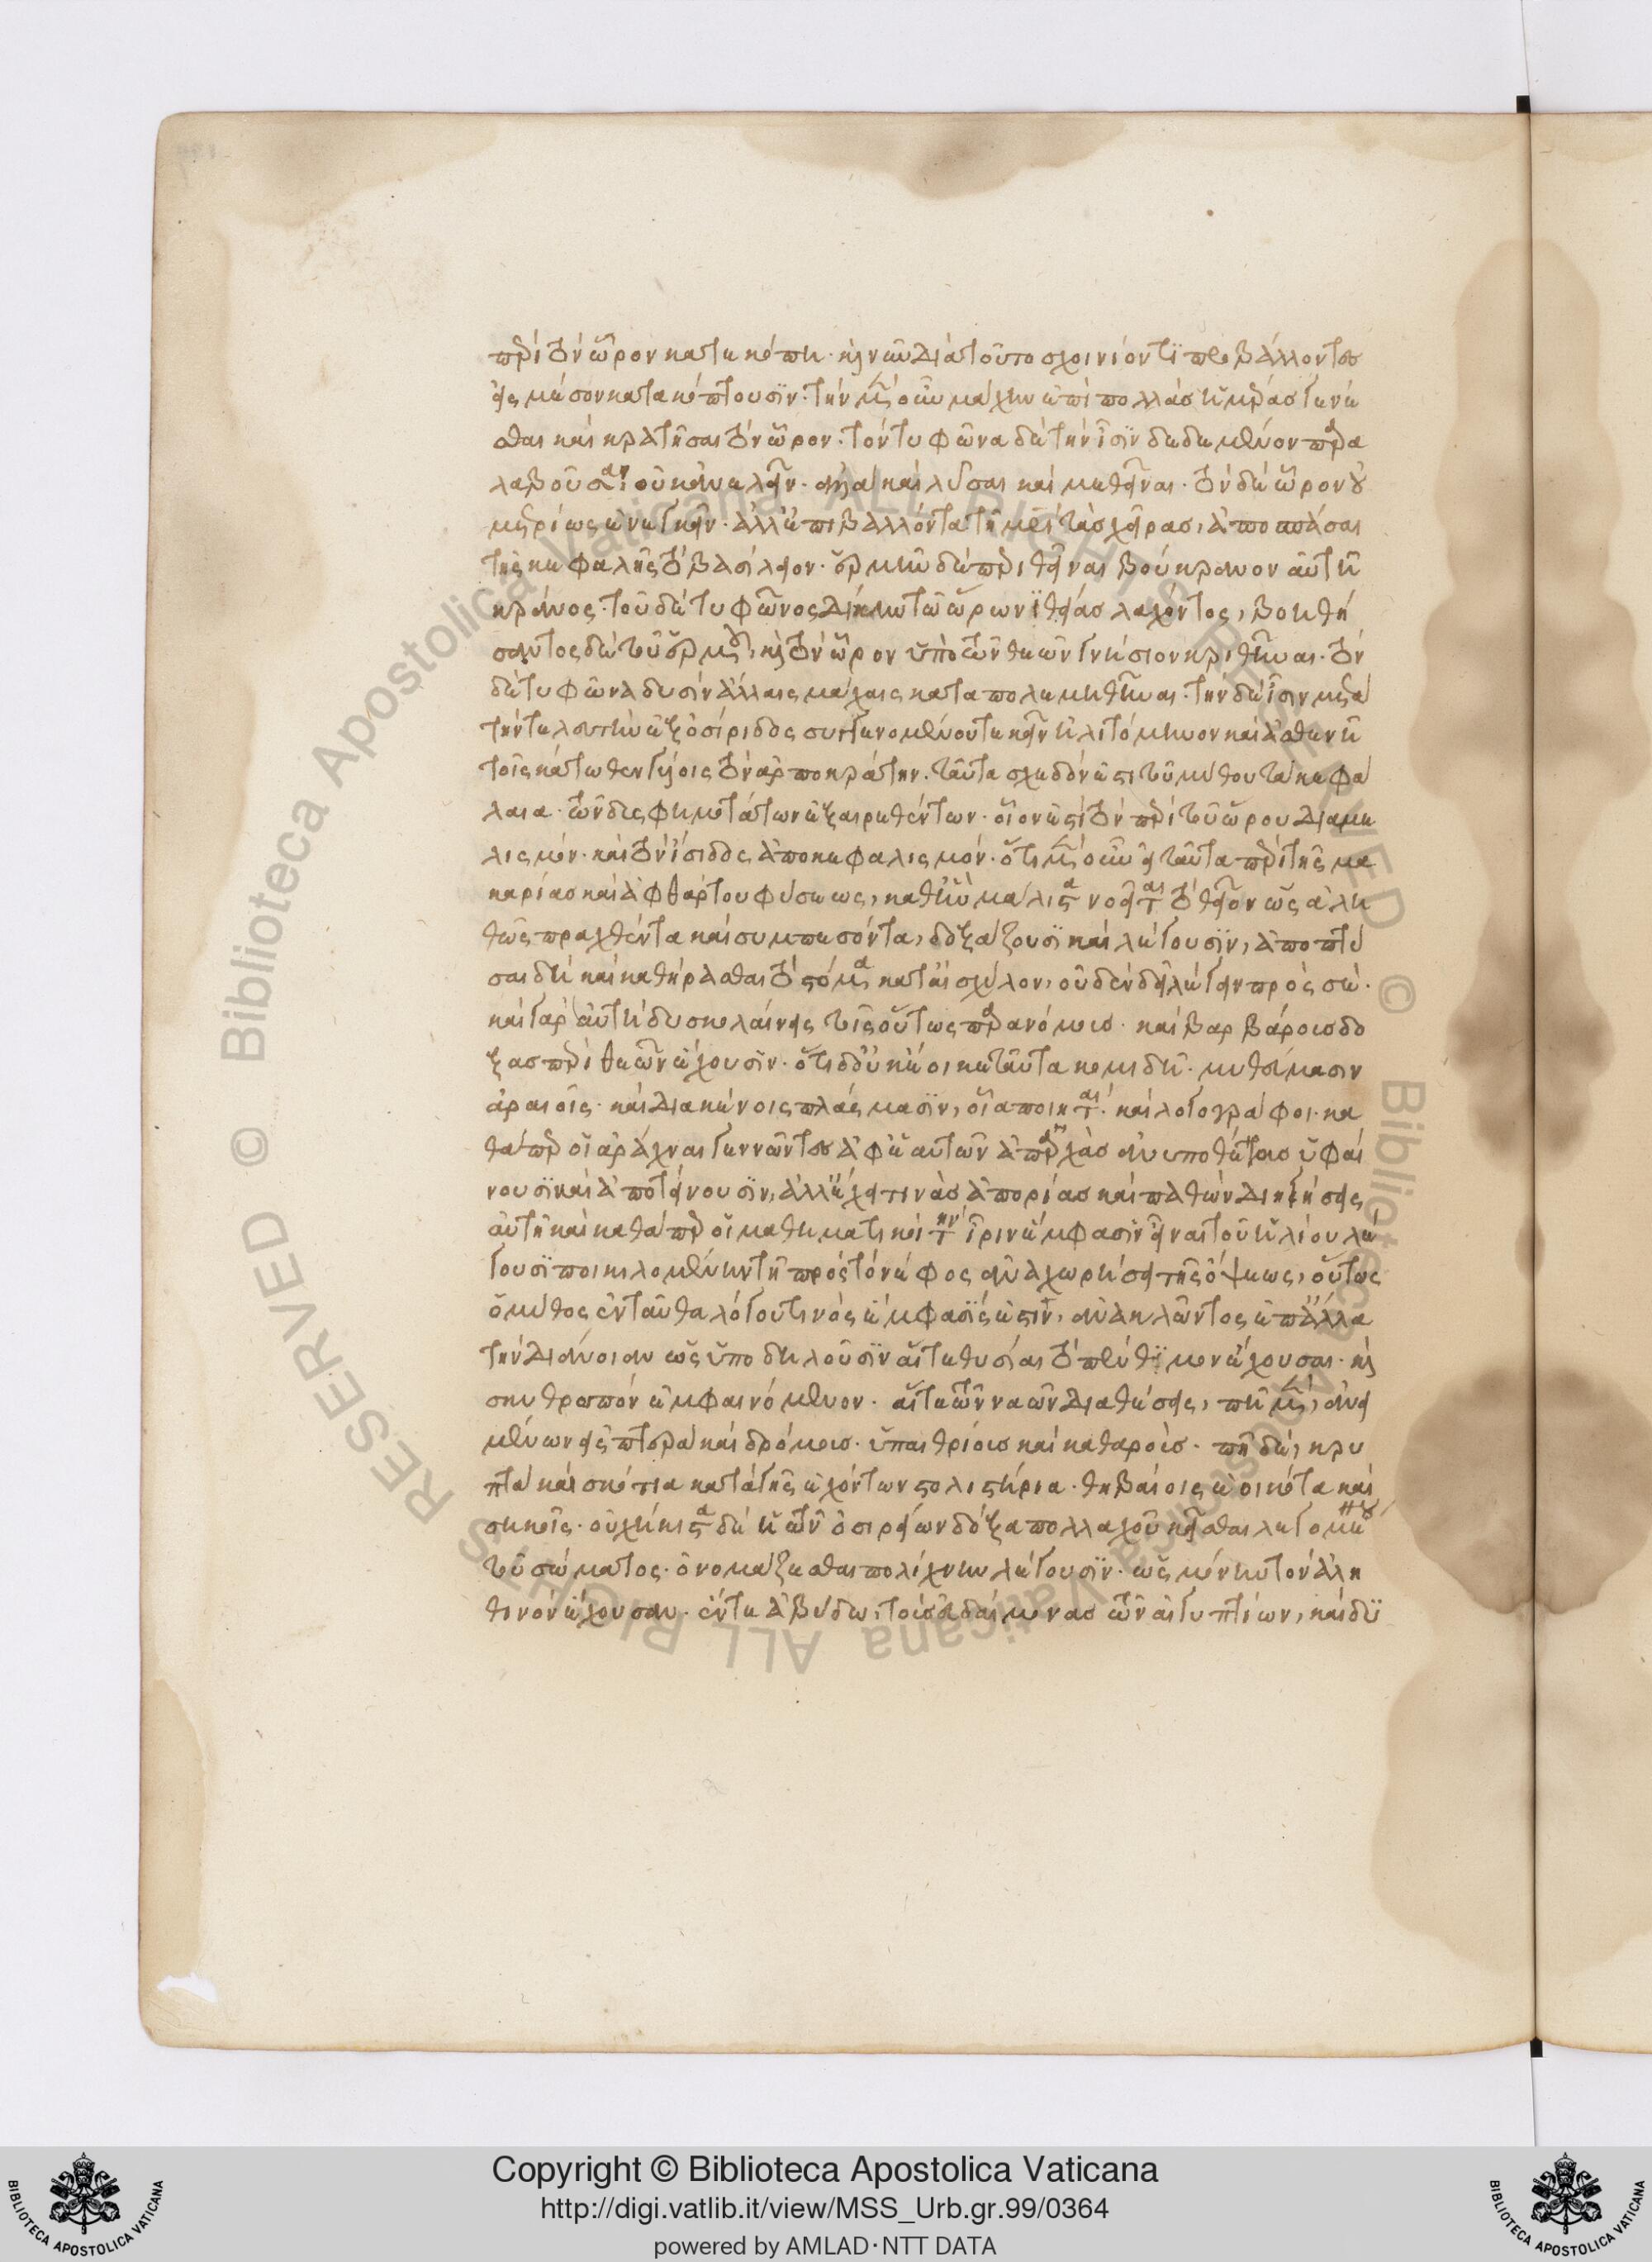 περὶ τὸν ὧρον κατακόπτει. καὶ νῦν διὰ τοῦτο σχοινίον τϊ προβάλλοντες
εἰς μέσον κατακόπτουσϊν. τὴν μὲν οὖν μάχην ἐπὶ πολλὰς ἡμέρας γενέ
σθαι καὶ κρατῆσαι τὸν ὧρον. τὸν τυφῶνα δὲ τὴν ἶσϊν δεδεμένον παρα
λαβοῦσαν. οὐκ ἀνελεῖν. ἀλλὰ καὶ λῦσαι καὶ μεθεῖναι. τὸν δὲ ὧρον οὐ
μετρίως ἐνεγκεῖν. ἀλλ' ἐπιβαλλόντα τῆ μητρὶ τὰς χεῖρας, ἀποσπάσαι
τῆς κεφαλῆς τὸ βασίλειον. ἑρμῆν δὲ περιθεῖναι βούκρανον αὐτῆ
κράνος. τοῦ δὲ τυφῶνος δίκην τῶ ὥρω νϊοθείας λαχόντος, βοηθή
σαντος δὲ τοῦ ἑρμοῦ, καὶ τὸν ὧρον ὑπὸ τῶν θεῶν γνήσιον κριθῆναι. τὸν
δὲ τυφῶνα δυσὶν ἄλλαις μάχαις καταπολεμηθῆναι. τὴν δὲ ἶσιν μετὰ
τὴν τελευτὴν ἐξ ὀσίριδος συγγενομένου τεκεῖν ἠλιτόμηνον καὶ ἀσθενῆ
τοῖς κάτωθεν γυίοις τὸν ἁρποκράτην. ταῦτα σχεδόν ἐστι τοῦ μύθου τὰ κεφά
λαια. τῶν δυσφημοτάτων ἐξαιρεθέντων. οἷον ἐστὶ τὸν περὶ τοῦ ὥρου διαμε
λισμόν. καὶ τὸν ἴσιδος ἀποκεφαλισμόν. ὅτι μὲν οὖν εἰ ταῦτα περὶ τῆς μα
καρίας καὶ ἀφθάρτου φύσεως, καθ' ἣν μάλιστα νοεῖται τὸ θεῖον ὡς ἀλη
θῶς πραχθέντα καὶ συμπεσόντα, δοξάζουσϊ καὶ λέγουσϊν, ἀποπτύ
σαι δεῖ καὶ καθήρασθαι τὸ στόμα κατ' αἰσχύλον, οὐδὲν δεῖ λέγειν πρὸς σέ.
καὶ γὰρ αὐτὴ δυσκολαίνεις τοῖς οὕτως παρανόμοις. καὶ βαρβάροις δό
ξας περὶ θεῶν ἔχουσιν. ὅτι δ' οὐκ ἔοικε ταῦτα κομιδῆ. μυθεύμασιν
ἀραιοῖς. καὶ διακένοις πλάσμασϊν, οἷα ποιηταί. καὶ λογογράφοι. κα
θάπερ οἱ ἀράχναι γεννῶντες ἀφ' ἑαυτῶν ἀπαρχὰς ἀνυποθέτοις ὑφαί
νουσϊ καὶ ἀποτείνουσϊν, ἀλλ' ἔχει τινὰς ἀπορίας καὶ παθῶν διηγήσεις
αὐτῆ καὶ καθάπερ οἱ μαθηματικοὶ τὴν ἶριν ἔμφασϊν εἶναι τοῦ ἡλίου λέ
γουσϊ ποικιλομένην τῆ πρὸς τὸ νέφος ἀναχωρήσει τῆς ὄψεως, οὕτως
ὁ μῦθος ἐνταῦθα λόγου τινὸς ἔμφασϊς ἐστϊν, ἀνακλῶντος ἐπ' ἄλλα
τὴν διάνοιαν ὡς ὑποδηλοῦσϊν αἵ τε θυσίαι τὸ πένθϊμον ἔχουσαι. καὶ
σκυθρωπὸν ἐμφαινόμενον. αἵ τε τῶν ναῶν διαθέσεις, πῆ μὲν, ἀνει
μένων εἰς πτερὰ καὶ δρόμοις. ὑπαιθρίοις καὶ καθαροῖς. πῆ δὲ, κρυ
πτὰ καὶ σκότια κατὰ γῆς ἐχόντων στολιστήρια. θηβαίοις ἐοικότα καὶ
σηκοῖς. οὐχ ἥκιστα δὲ ἡ τῶν ὀσιρείων δόξα πολλαχοῦ κεῖσθαι λεγομένου
τοῦ σώματος. ὀνομάζεσθαι πολίχνην λέγουσϊν. ὡς μόνην τὸν ἀλη
θινὸν ἔχουσαν. ἔν τε ἀβύδω, τοὺς εὐδαίμονας τῶν αἰγυπτίων, καὶ δϋ
Copyright © Biblioteca Apostolica Vaticana
http://digi.vatlib.it/view/MSS_Urb.gr.99/0364
powered by AMLAD·NTT DATA